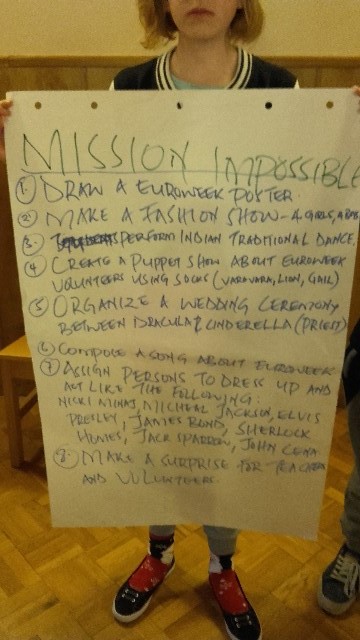 MISSION IMPOSSIBLE
1. DRAW A EUROWEEK POSTER.
2. MAKE A FASHION SHOW - 4 GIRLS, 4 BOYS
3. PERFORM INDIAN TRADITIONAL DANCE
4. CREATE A PUPPET SHOW ABOUT EUROWEEK
VOLUNTEERS USING SOCKS (VARVARA, LION, GAIL)
5. ORGANIZE A WEDDING CEREMONY
BETWEEN DRACULA & CINDERELLA (PRIEST)
6. COMPOSE A SONG ABOUT EUROWEEK
7. ASSIGN PERSONS TO DRESS UP AND
ACT LIKE THE FOLLOWING:
NICKI MINAJ, MICHEAL JACKSON, ELVIS
PRESLEY, JAMES BOND, SHERLOCK
HOMES, JACK SPARROW, JOHN CENA
8. MAKE A SURPRISE FOR TEACHERS
AND VULUNTEERS.